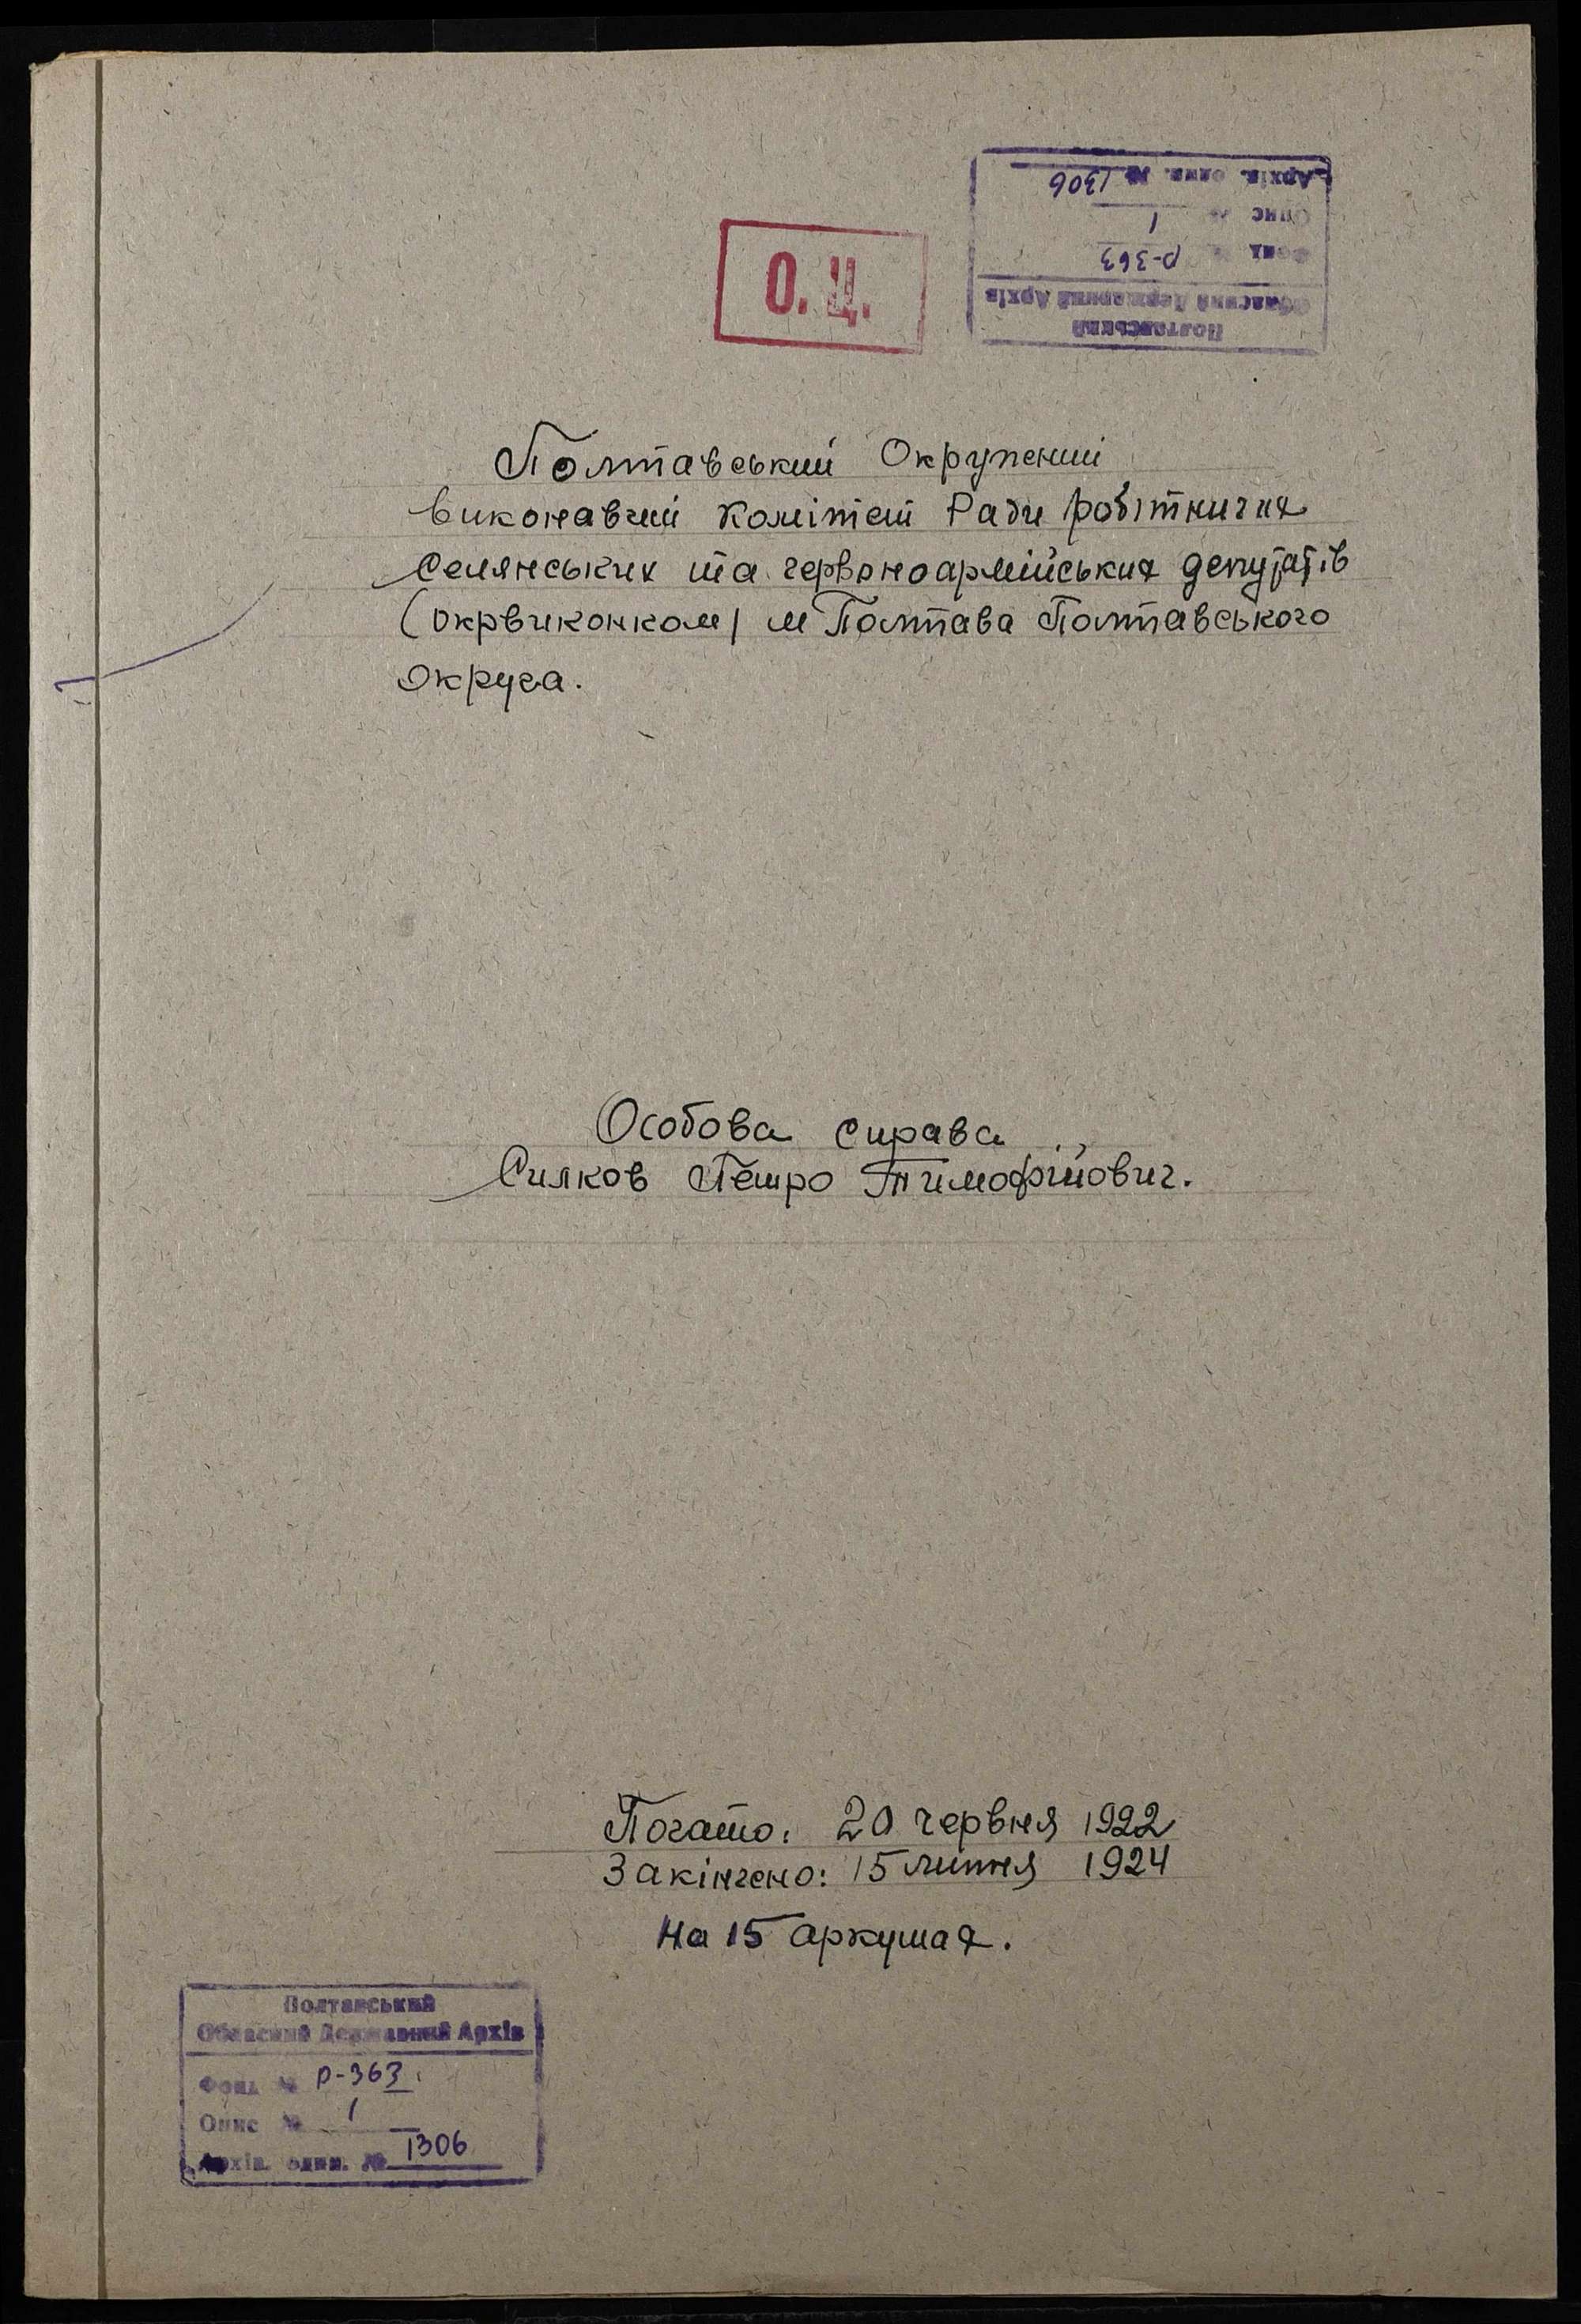 Архів. один. № 1306
Опис № 1
Фонд № р-363
Обласний Державний Архів
Полтавський
О. Ц.
Полтавський Окружений
виконавчий комітет Ради робітничих
селянських та червоноармійських депутатів
(окрвиконком) м Полтава Полтавського
округа.
Особова справа
Силков Петро Тимофійович.
Почато: 20 червня 1922
Закінчено: 15 липня 1924
на 15 аркушах.
Полтавський
Обласний Державний Архів
Фонд № р-363
Опис № 1
Архів. один. № 1306